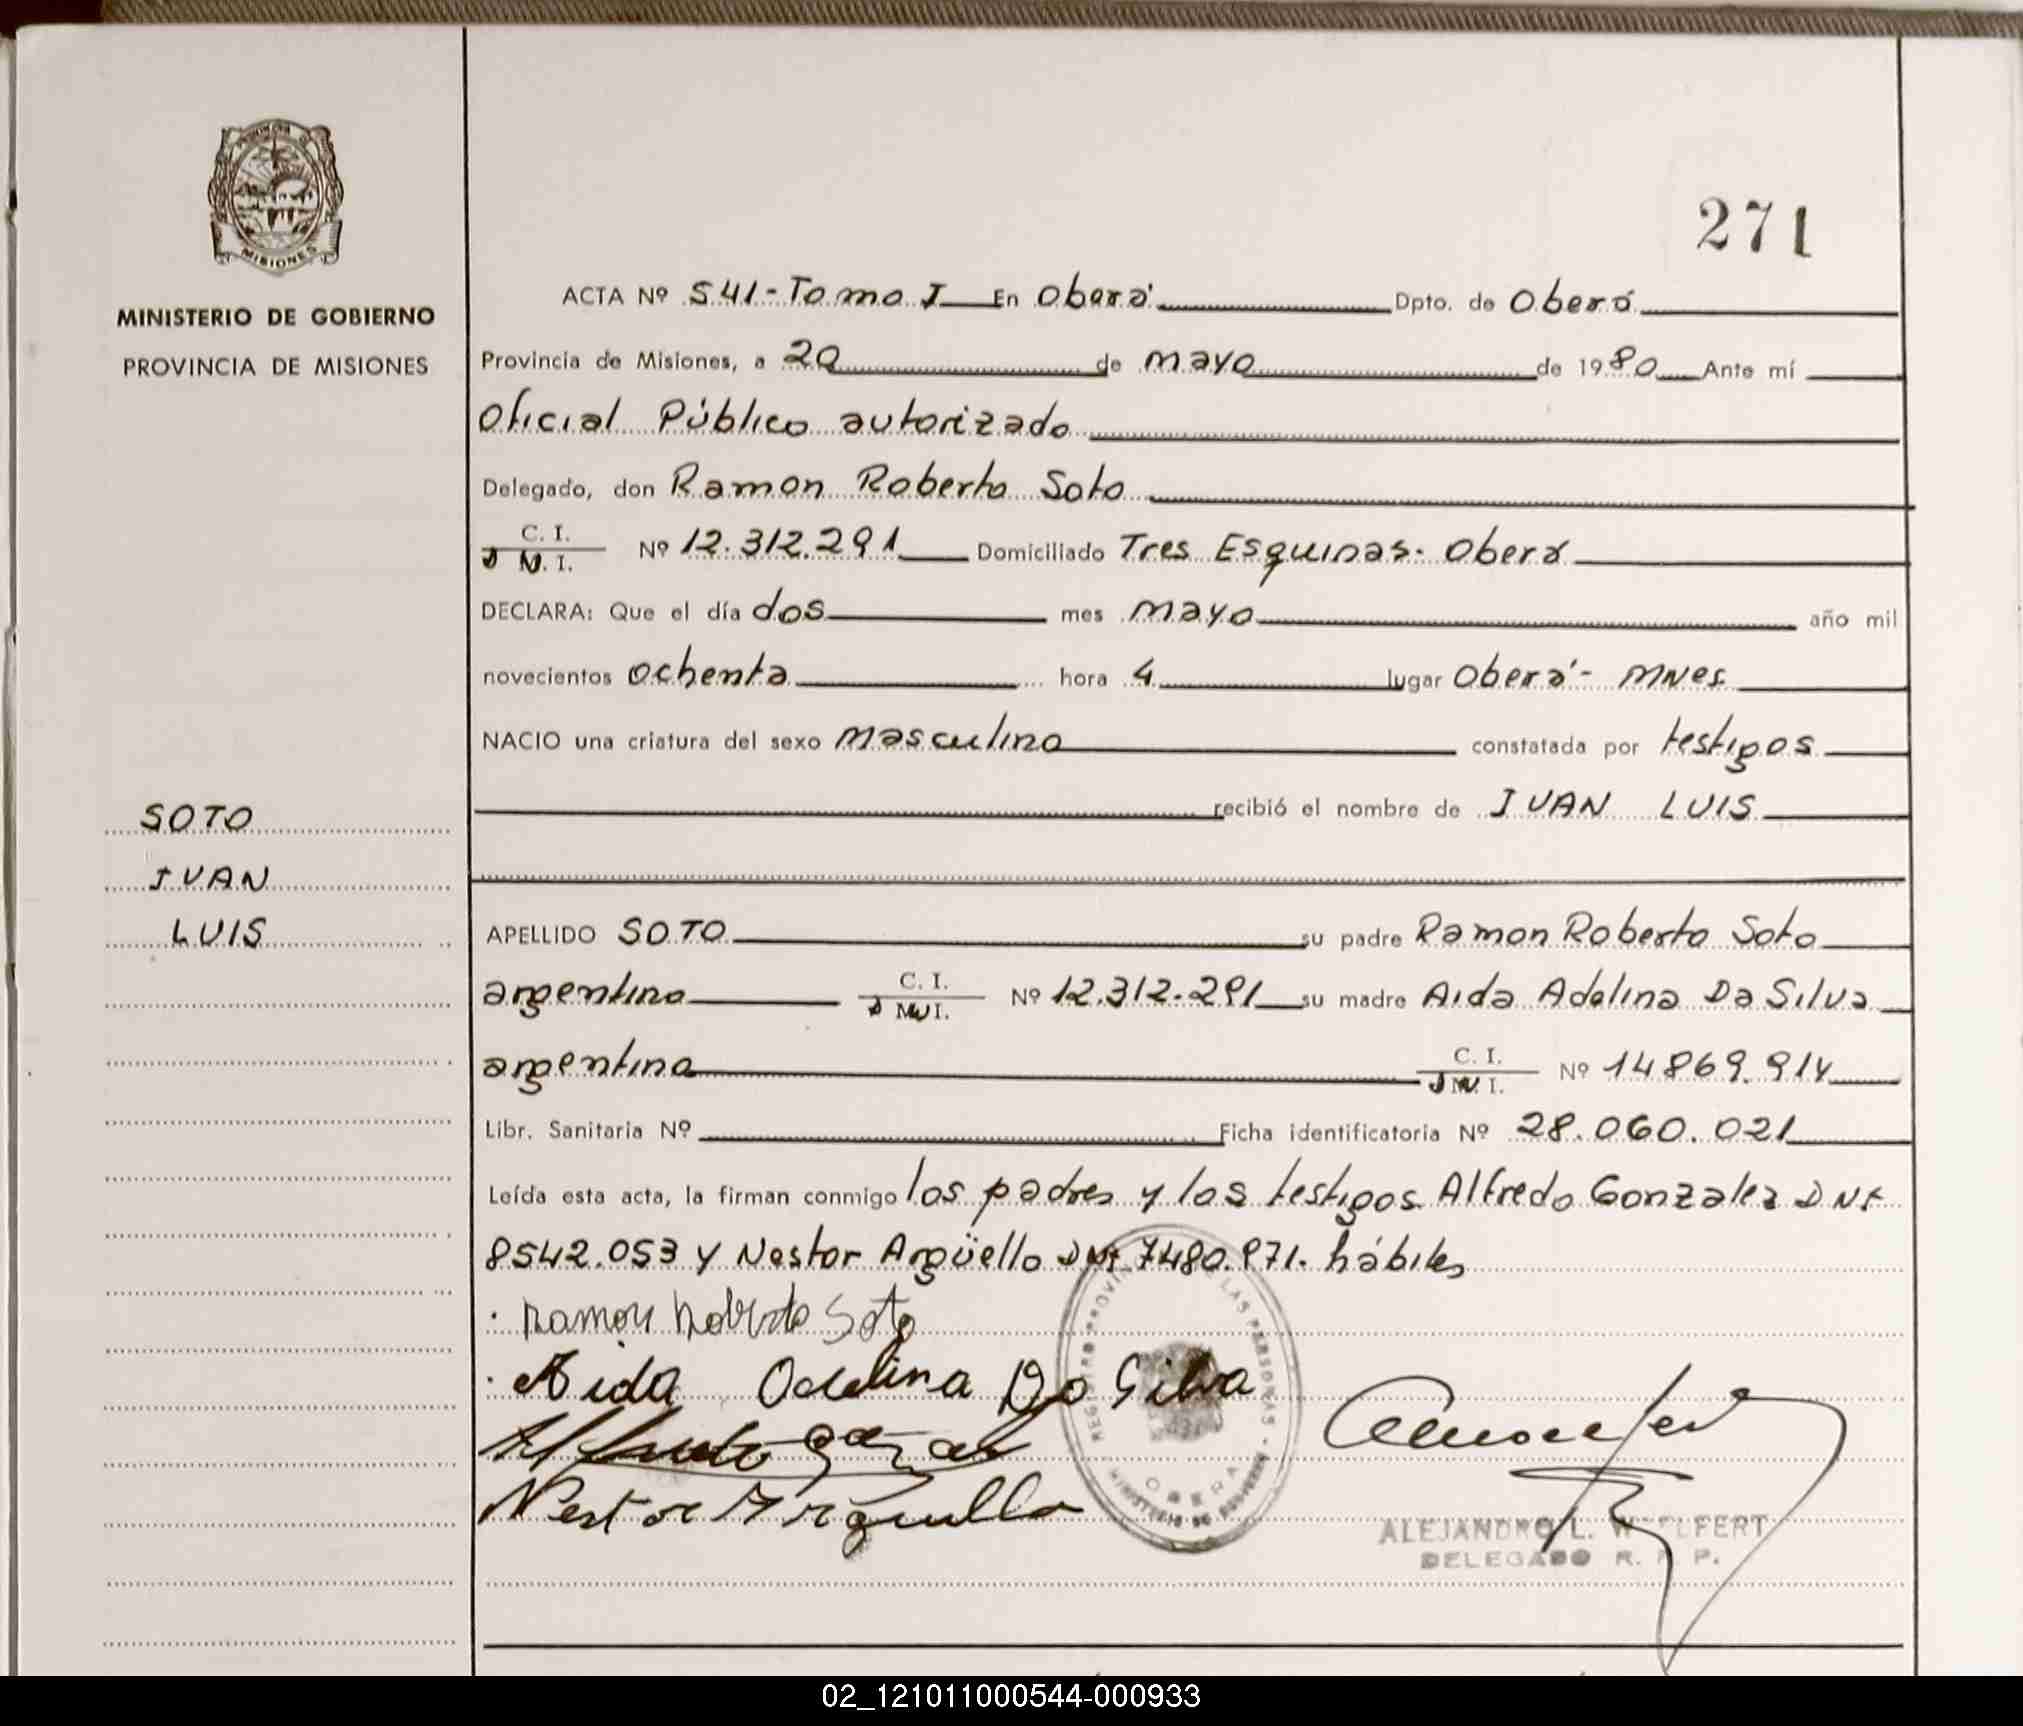 271
MISIONES
MINISTERIO DE GOBIERNO
PROVINCIA DE MISIONES
ACTA Nº 541-Tomo I En Oberá Dpto. de Oberá
Provincia de Misiones, a 20 de mayo de 1980 Ante mí
Oficial Público autorizado
Delegado, don Ramon Roberto Soto
C. I.
D N. I. Nº 12.312.291 Domiciliado Tres Esquinas. Oberá
DECLARA: Que el día dos mes mayo año mil
novecientos ochenta hora 4 lugar Oberá- MNes
NACIO una criatura del sexo masculino constatada por testigos
recibió el nombre de IVAN LUIS
SOTO
IVAN
LUIS
APELLIDO SOTO su padre Ramon Roberto Soto
argentino C. I. Nº 12.312.291 su madre Aida Adelina Da Silva
D N I.
argentina C. I. Nº 14869.914
D N I.
Libr. Sanitaria Nº Ficha identificatoria Nº 28.060.021
Leída esta acta, la firman conmigo los padres y los testigos Alfredo Gonzalez DNI
8542.053 y Nestor Argüello DNI 7480.971. hábiles
Ramon Roberto Soto
Aida Odelina Da Silva
Nestor Arguello
REGISTRO PROVINCIAL DE LAS PERSONAS - MINISTERIO DE GOBIERNO
OBERA
ALEJANDRO L. W LFERT
DELEGADO R. P.
02_121011000544-000933